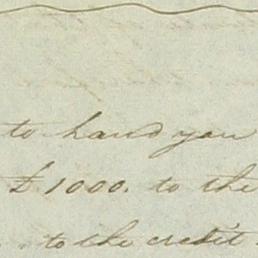 to hand you
£1000. to the
to the credit